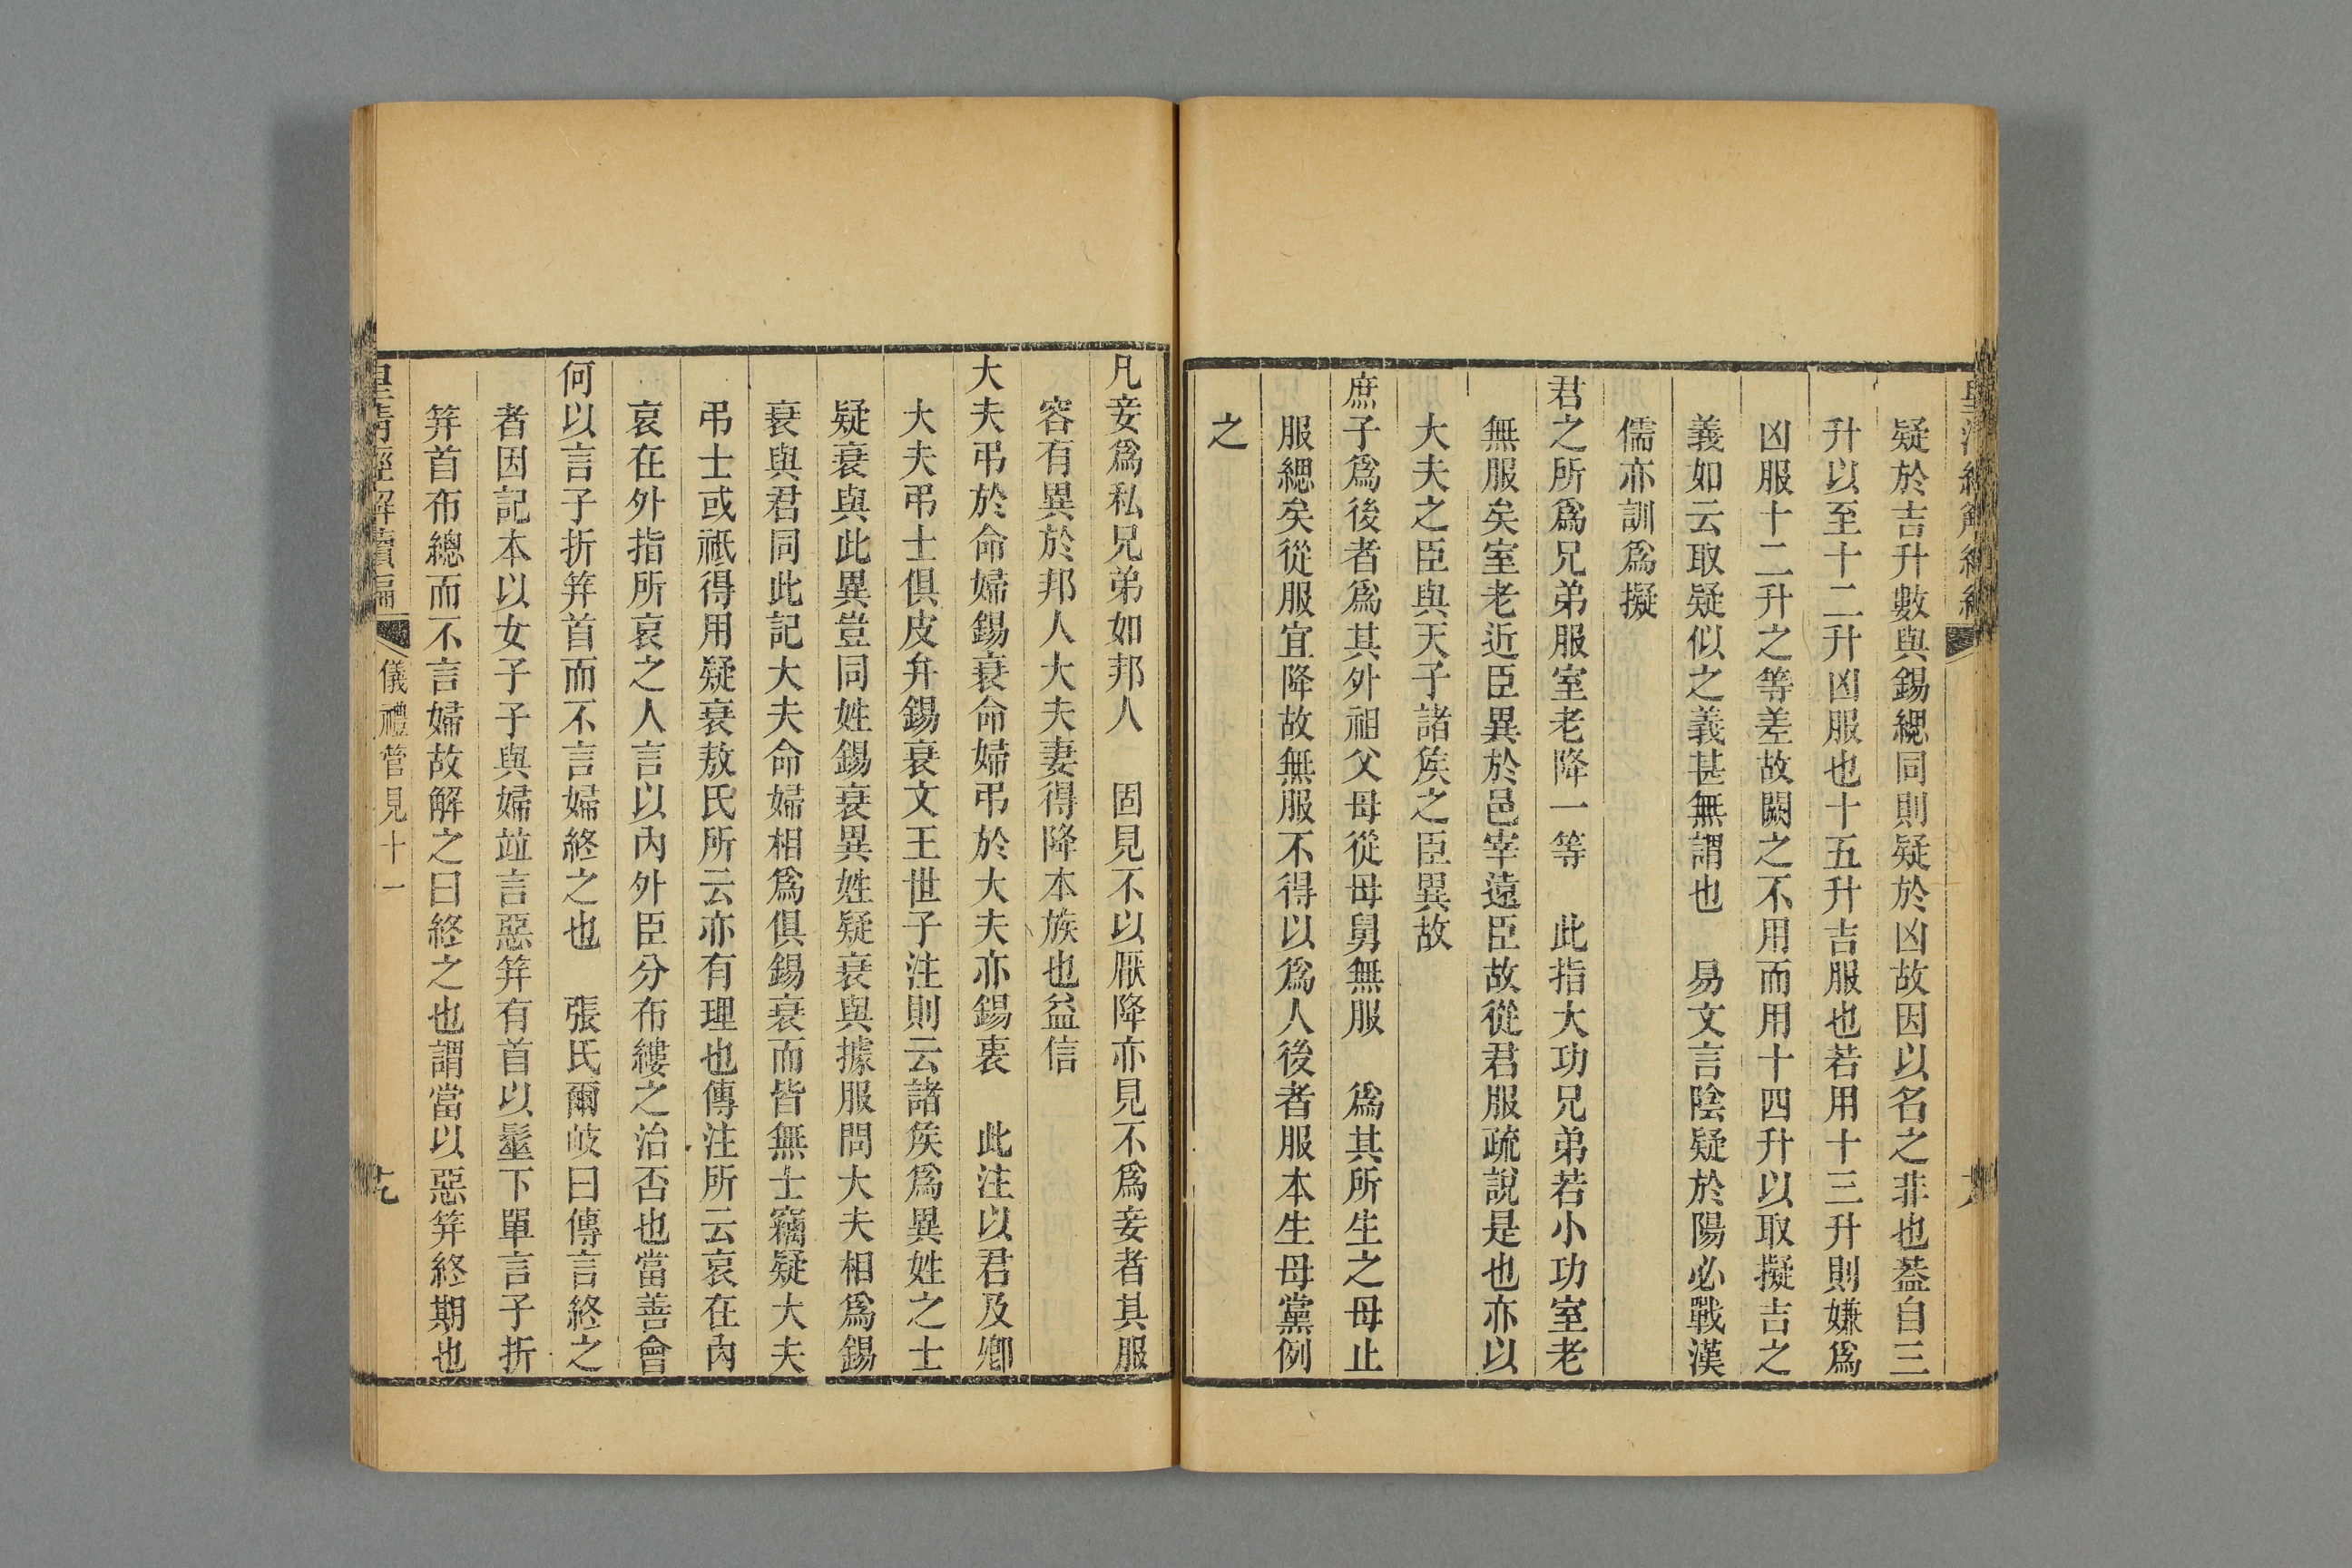 疑於吉升數與錫緦同則疑於凶故因以名之非也葢自三
升以至十二升凶服也十五升吉服也若用十三升則嫌爲
凶服十二升之等差故闕之不用而用十四升以取擬吉之
義如云取疑似之義甚無謂也　易文言陰疑於陽必戰漢
儒亦訓爲擬
君之所爲兄弟服室老降一等　此指大功兄弟若小功室老
無服矣室老近臣異於邑宰遠臣故從君服疏說是也亦以
大夫之臣與天子諸矦之臣異故
庶子爲後者爲其外祖父母從母舅無服　爲其所生之母止
服緦矣從服宜降故無服不得以爲人後者服本生母黨例
之
凡妾爲私兄弟如邦人　固見不以厭降亦見不爲妾者其服
容有異於邦人大夫妻得降本族也益信
大夫弔於命婦錫衰命婦弔於大夫亦錫衷　此注以君及鄉
大夫弔士俱皮弁錫衰文王世子注則云諸矦爲異姓之士
疑衰與此異豈同姓錫衰異姓疑衰與據服問大夫相爲錫
衰與君同此記大夫命婦相爲俱錫衰而皆無士竊疑大夫
弔士或祗得用疑衰敖氏所云亦有理也傳注所云哀在內
哀在外指所哀之人言以內外臣分布縷之治否也當善會
何以言子折笄首而不言婦終之也　張氏爾岐曰傳言終之
者因記本以女子子與婦竝言惡笄有首以髽下單言子折
笄首布總而不言婦故解之曰終之也謂當以惡笄終期也
皇清經解續編　儀禮管見十一　十九